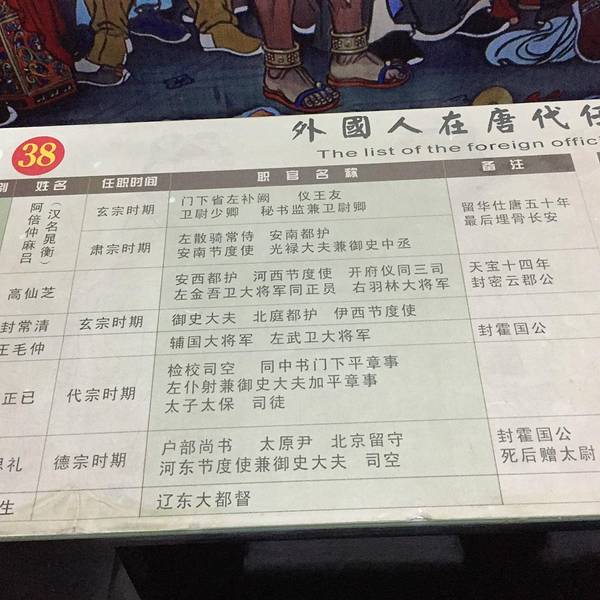 38
外國人在唐代
The list of the foreign offic
别 姓名 任职时间 职官名称 备注
阿倍仲麻吕
(汉名晁衡)
玄宗时期
门下省左补阙 仪王友
卫尉少卿 秘书监兼卫尉卿
留华仕唐五十年
最后埋骨长安
肃宗时期
左散骑常侍 安南都护
安南节度使 光禄大夫兼御史中丞
高仙芝
安西都护 河西节度使 开府仪同三司
左金吾卫大将军同正员 右羽林大将军
天宝十四年
封密云郡公
封常清 玄宗时期 御史大夫 北庭都护 伊西节度使
王毛仲 辅国大将军 左武卫大将军 封霍国公
正已 代宗时期
检校司空 同中书门下平章事
左仆射兼御史大夫加平章事
太子太保 司徒
礼 德宗时期
户部尚书 太原尹 北京留守
河东节度使兼御史大夫 司空
封霍国公
死后赠太尉
生 辽东大都督